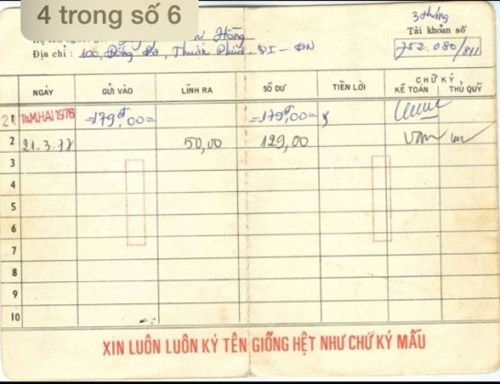 4 trong số 6
Hồng
3 tháng
Tài khoản số
Địa chỉ : 100, Đống Đa, Thuận Phước QI - ĐN
752.080/811
NGÀY GỬI VÀO LÃNH RA SỐ DƯ TIỀN LỜI CHỮ KÝ
KẾ TOÁN THỦ QUỸ
=179đ,00= =179đ,00=
2 21.3.78 50,00 129,00
3
4
5
6
7
8
9
10
XIN LUÔN LUÔN KÝ TÊN GIỐNG HỆT NHƯ CHỮ KÝ MẪU